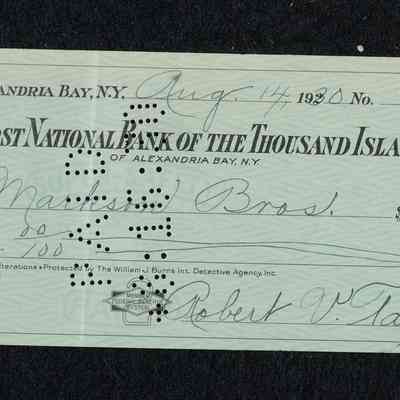 ANDRIA BAY, N.Y. Aug. 14, 1930 No.
RST NATIONAL BANK OF THE THOUSAND ISLA
OF ALEXANDRIA BAY, N.Y.
Markson Bros. $
00
100
lterations • Protected by The William J. Burns Int. Detective Agency, Inc.
MEMBER
FEDERAL RESERVE
SYSTEM
Robert V. Ta
PAID